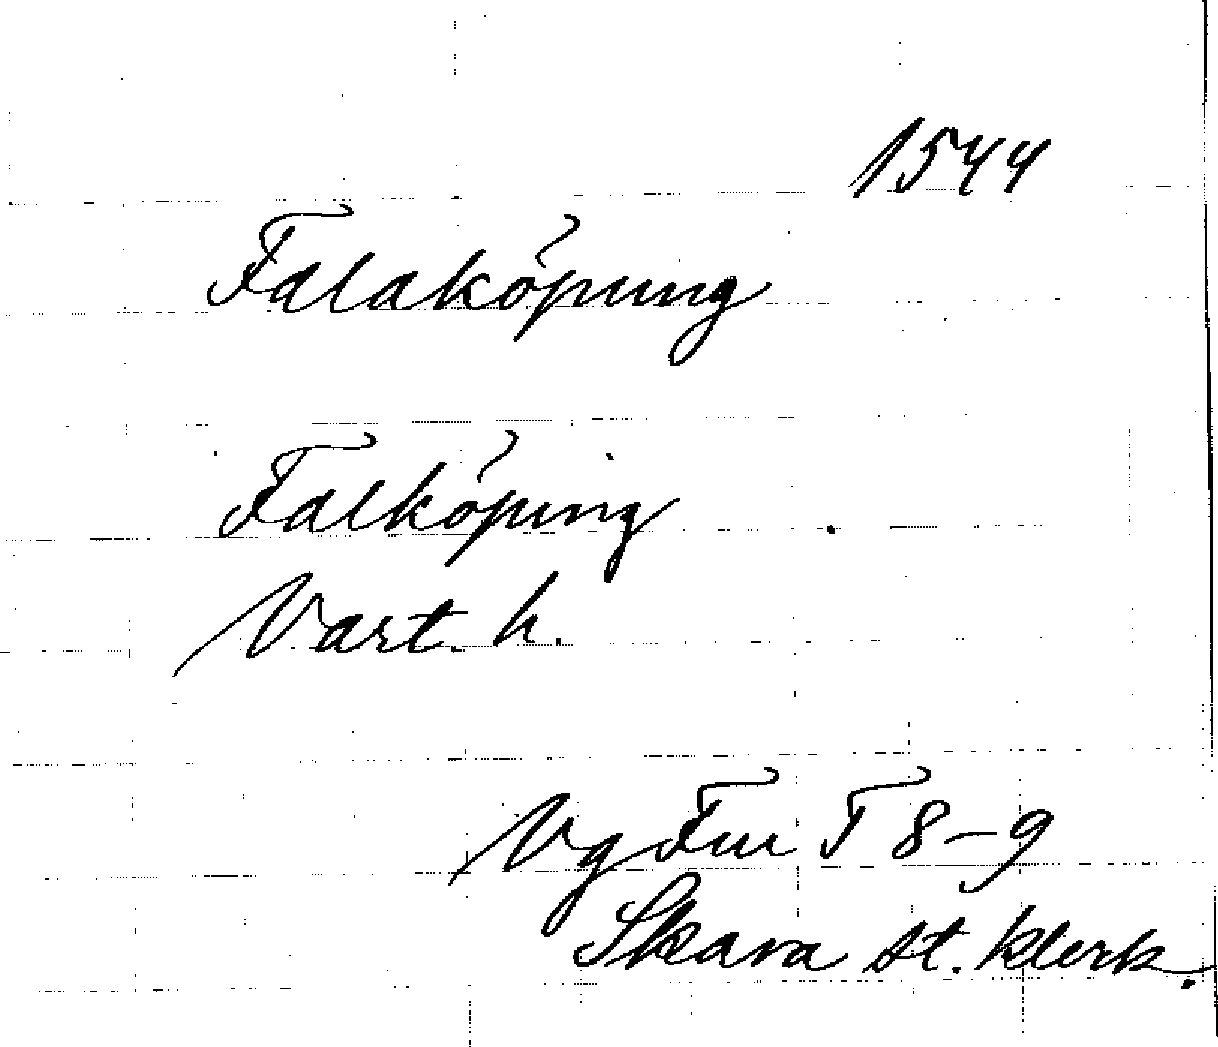 1544
Falaköping
Falköping
Vart. h.
Vg Fur T 8-9
Skara st. klerk.